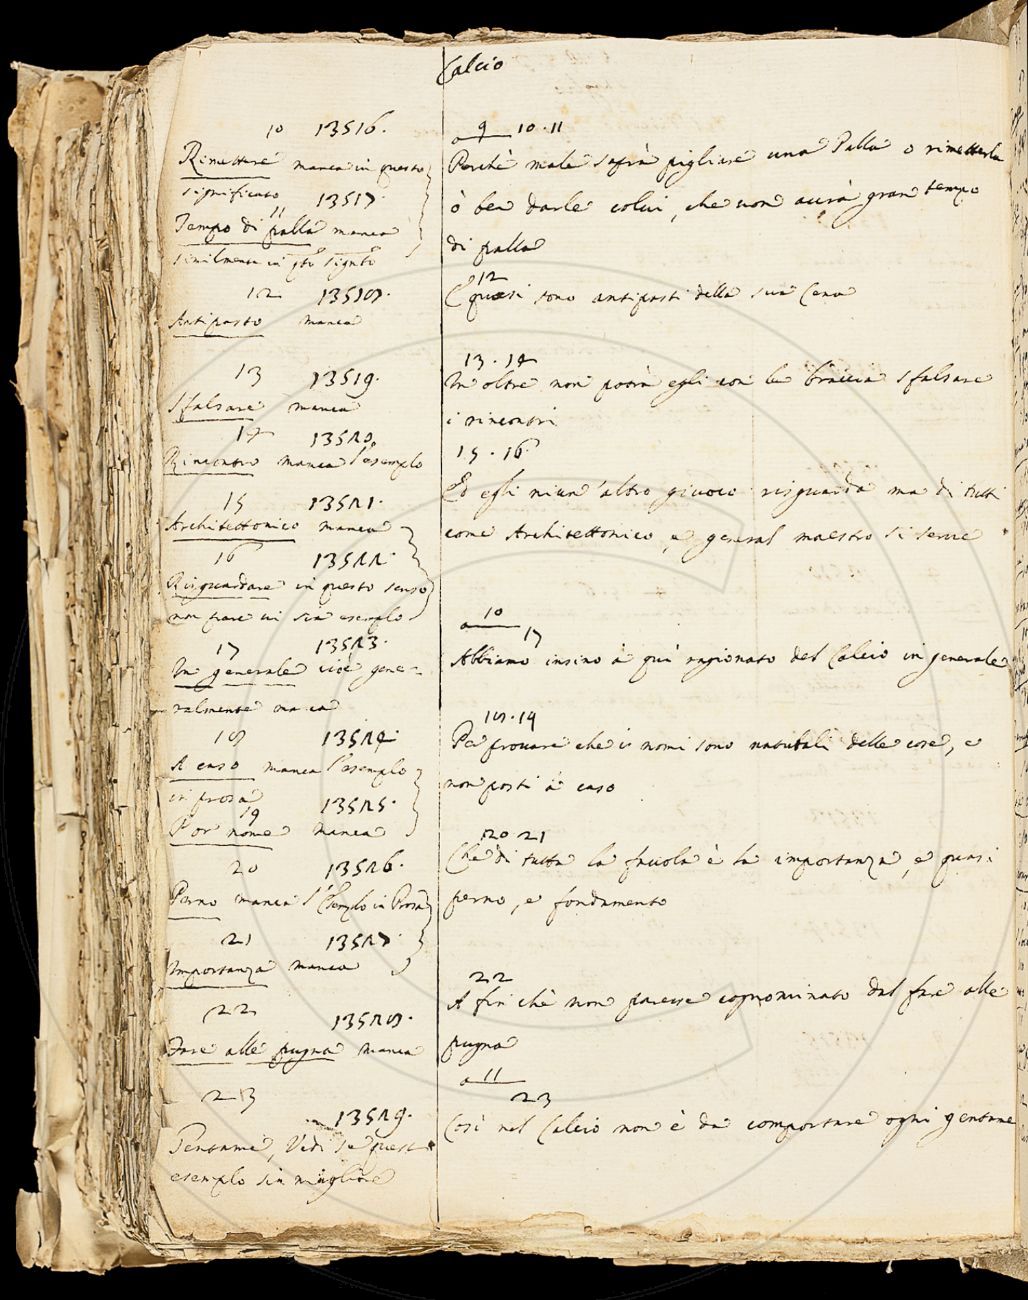 Calcio
10 13516.
Rimettere manca in questo
significato 13517
11
Tempo di palla manca
similmente in qto signto
12 13518.
Antipasto manca
13 13519.
Sfalsare manca
14 13520.
Rincontro manca l'esempio
15 13521.
Architettonico manca
16 13522.
Risguardare in questo senso
non pare vi sia esempio
17 13523.
In generale cioè gene-
ralmente manca
18 13524.
A caso manca l'esempio
in prosa 13525.
19
Por nome manca
20 13526.
Perno manca l'esempio in Prosa
21 13527.
Importanza manca
22 13528.
Fare alle pugna manca
23
13529.
Gentame, Vedi se quest
esempio sia migliore
a 9 10. 11
Perchè male saprà pigliare una Palla o rimetterla
ò ben darle colui, che non avrà gran tempo
di palla
12
E quasi sono antipasti della sua Cena
13. 14
In oltre non potrà egli con le braccia sfalsare
i rincontri
15. 16
Ed egli niun'altro giuoco risguarda ma di tutti
come Architettonico, e general maestro si serve
a 10
17
Abbiamo insino à quì ragionato del Calcio in generale
18. 19
Per provare che i nomi sono naturali delle cose, e
non posti à caso
20 21
Chè di tutta la favola è la importanza, e quasi
perno, e fondamento
22
A fin chè non paresse cognominato dal fare alle
pugna
a 11
23
Così nel Calcio non è da comportare ogni gentame